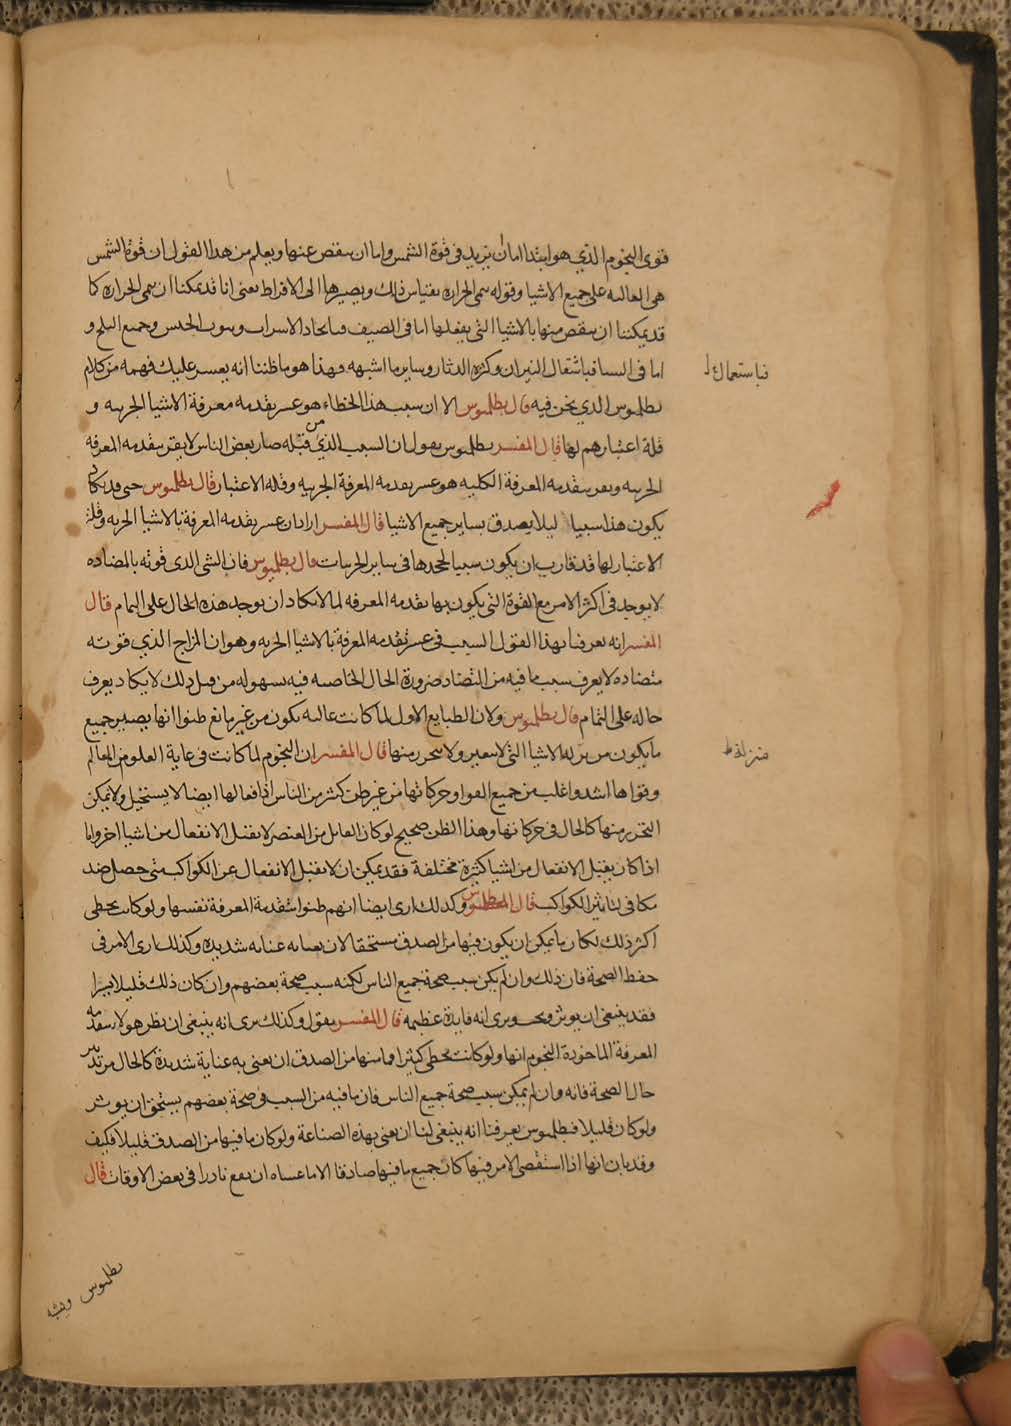 قوى النجوم الذي هو ابتدا اما ان يزيد فى قوة الشمس واما ان ينقص عنها ويعلم من هذا القول ان قوة الشمس
هى الغالبه على جميع الاشيا وقوله يمى الحراره بقياس ذلك ويصيرها الى الافراط يعنى انا قد يمكننا ان يمى الحراره كما
قد يمكننا ان ينقص منها بالاشيا التى يفعلها اما فى الصيف فباتحاد الاسراب وجميع الثلج و
اما فى الشتا فباشتعال النيران وكثرة الدثار وساير ما اشبهه فهذا هو ما ظننا انه يعسر عليك فهمه من كلام
فباستعمال
بطلميوس الذي نحن فيه قال بطلميوس الا ان سبب هذا الخطاء هو عسر تقدمه معرفة الاشيا الجزييه و
قلة اعتبارهم لها قال المفسر بطلميوس يقول ان السبب الذي من قبله صار بعض الناس لا يقر بتقدمه المعرفه
الجزييه ويقر بتقدمه المعرفة الكليه هو عسر تقدمه المعرفة الجزييه وقلة الاعتبار قال بطلميوس حتى قد يكاد
يكون هذا سببا ليلا يصدق بساير جميع الاشيا قال المفسر اراد ان عسر تقدمه المعرفة بالاشيا الجزييه وقلة
الاعتبار لها قد قارب ان يكون سببا لجحدها فى ساير الجزييات قال بطلميوس فان الشى الذى قوته بالمضاده
لا يوجد فى اكثر الامر مع القوة التى يكون بها تقدمه المعرفه لما لا يكاد ان يوجد هذه الحال على التمام قال
المفسر انه يعرفنا بهذا القول السبب فى عسر تقدمه المعرفة بالاشيا الجزييه وهو ان المزاج الذي قوته
متضاده لا يعرف بسبب ما فيه من التضاد ضرورة الحال الخاصيه فيه بسهوله من قبل ذلك لا يكاد يعرف
حاله على التمام قال بطلميوس ولان الطبايع الاول لما كانت غالبه تكون من غير مانع ظنوا انها يصير جميع
ما يكون من الاشيا التى لا يتغير ولا يتحرز منها قال المفسر ان النجوم لما كانت فى غاية العلو من العالم
وقواها اشد واغلب من جميع القوا وحركاتها من غير ظن كثير من الناس ان افعالها ايضا لا يستحيل ولا يمكن
التحرز منها كالحال فى حركاتها وهذا الظن صحيح لو كان القابل من العنصر لا يقبل الانفعال من اشيا اخر واما
اذا كان يقبل الانفعال من اشيا كثيرة مختلفة فقد يمكن ان لا يقبل الانفعال عن الكواكب متى حصل ضد
مكافى لتاثير الكواكب قال بطلميوس وكذلك ارى ايضا انهم ظنوا بتقدمة المعرفة نفسها ولو كانت يخطى
اكثر ذلك لكان ما يمكن ان يكون فيها من الصدق مستحقا لان يعنا به عنايه شديده وكذلك ارى الامر فى
حفظ الصحة فان ذلك وان لم يكن سبب صحة جميع الناس لكنه سبب صحة بعضهم وان كان ذلك قليلا نزرا
فقد ينبغى ان يوثر ويحب ويرى انه فايدة عظيمه قال المفسر يقول وكذلك يرى انه ينبغى ان ينظر هولا بتقدمه
المعرفة الماخوذة النجوم انها ولو كانت يخطى كثيرا فما منها من الصدق ان يعنى به عناية شديدة كالحال من تدبير
حال الصحة فانه وان لم يمكن سبب صحة جميع الناس فان ما فيه من السبب فى صحة بعضهم يستحق ان يوثر
ولو كان قليلا فبطلميوس يعرفنا انه ينبغى لنا ان يعنى بهذه الصناعة ولو كان ما فيها من الصدق قليلا فكيف
وقد بان انها اذا استقصى الامر فيها كان جميع ما فيها صادقا الا ما عساه ان يقع نادرا فى بعض الاوقات قال
بطلميوس